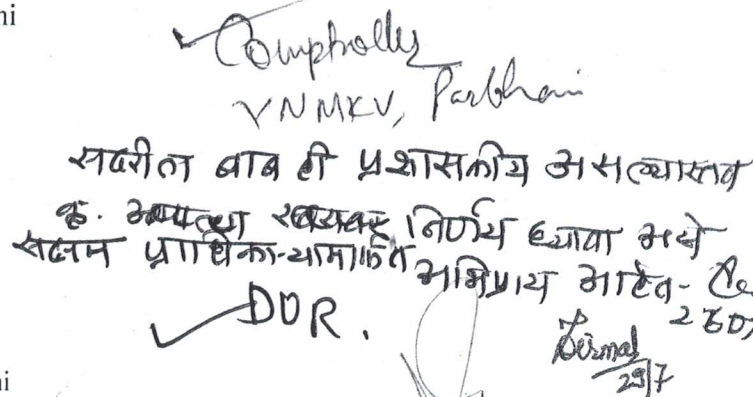 ni
Comptroller
VNMKV, Parbhani
सदरील बाब ही प्रशासकीय असल्यास्तव
कृ. आपल्या स्तरावर निर्णय घ्यावा असे
सक्षम प्राधिका-यामार्फत अभिप्राय आहेत-
DOR.
29/7
ni